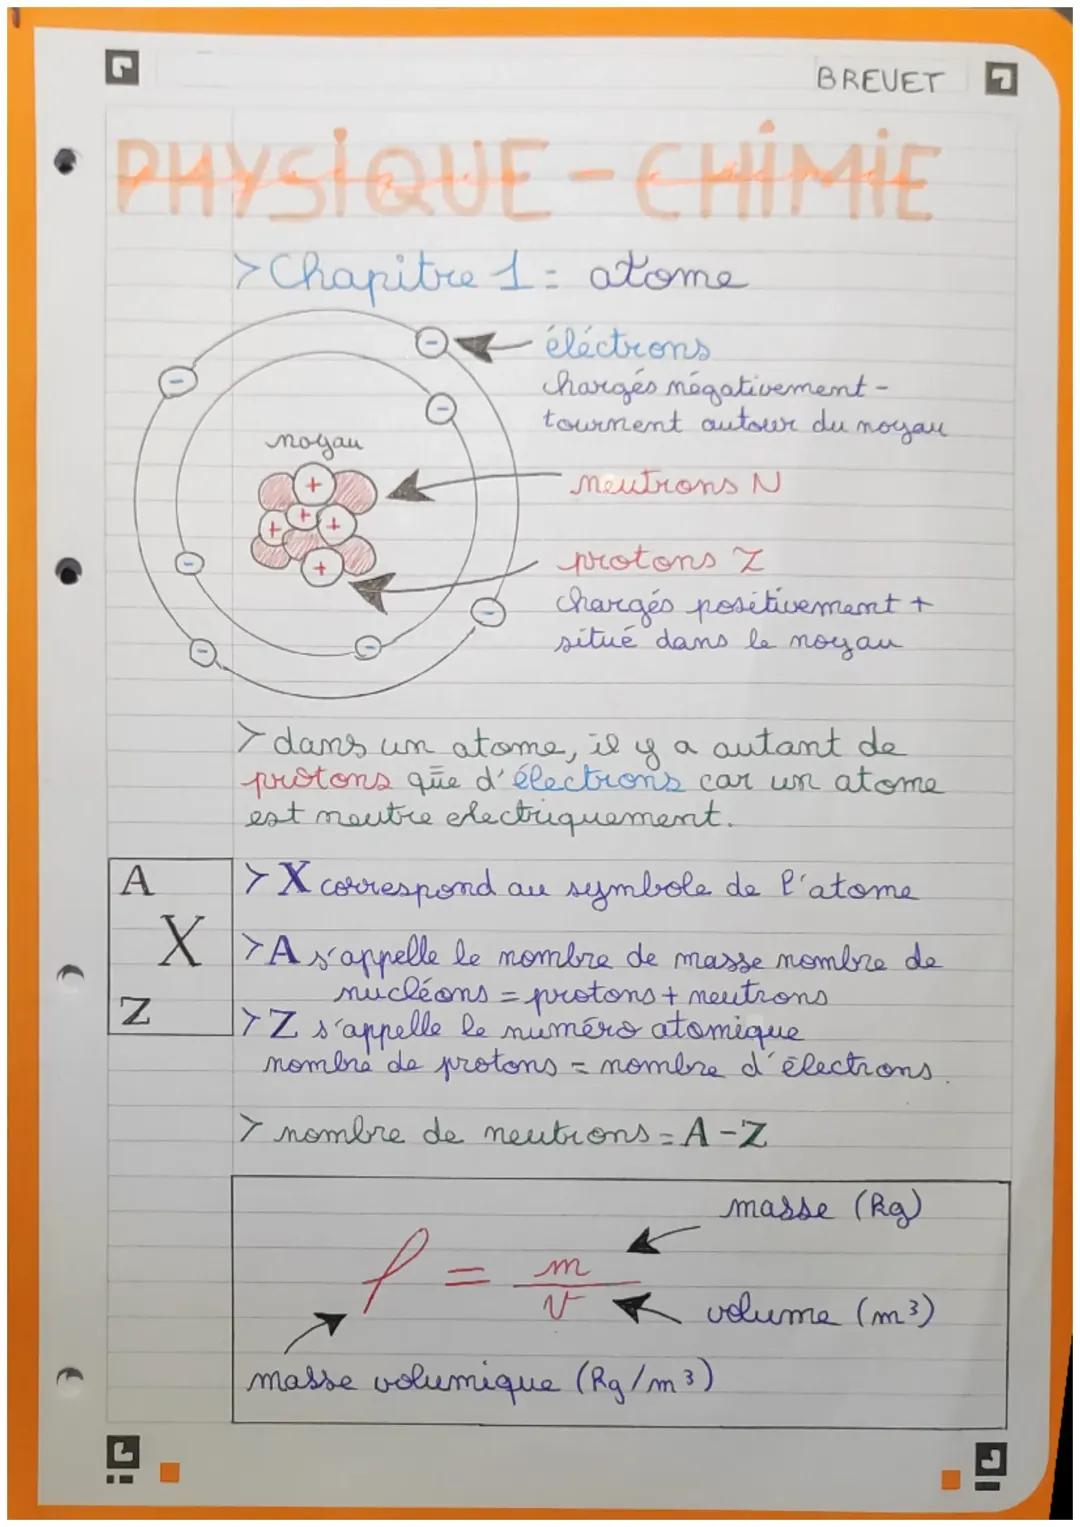 BREVET
PHYSIQUE - CHIMIE
> Chapitre 1 = atome
éléctrons
chargés négativement -
tournent autour du noyau
noyau
neutrons N
protons Z
chargés positivement +
situé dans le noyau
> dans un atome, il y a autant de
protons que d'électrons car un atome
est neutre electriquement.
A
X
Z
> X correspond au symbole de l'atome
> A s'appelle le nombre de masse nombre de
nucléons = protons + neutrons
> Z s'appelle le numéro atomique
nombre de protons = nombre d'électrons.
> nombre de neutrons = A - Z
masse (Kg)
ρ = m
v
volume (m³)
masse volumique (Kg/m³)